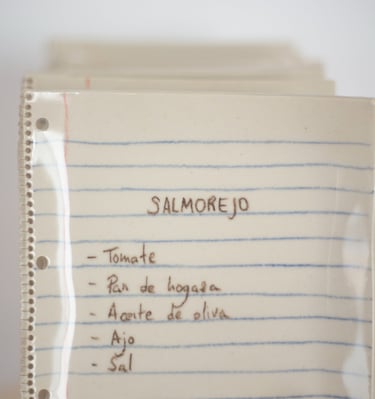 SALMOREJO
- Tomate
- Pan de hogaza
- Aceite de oliva
- Ajo
- Sal